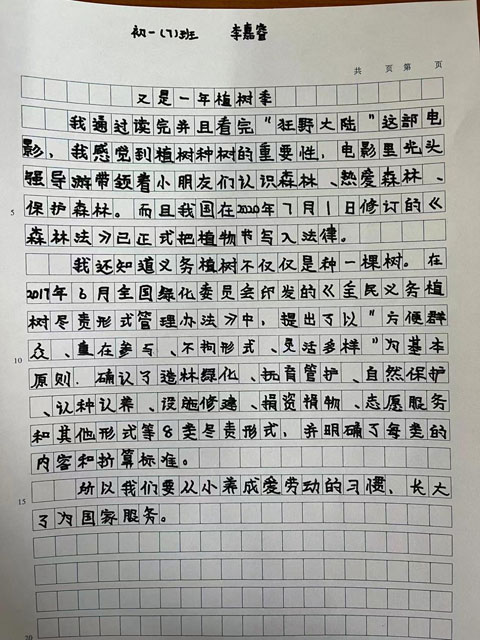 初一(7)班 李嘉睿
共 页 第 页
又是一年植树季
我通过读完并且看完"狂野大陆"这部电
影、我感觉到植树种树的重要性，电影里光头
强导游带领着小朋友们认识森林、热爱森林、
5
保护森林。而且我国在2020年7月1日修订的《
森林法》已正式把植物节写入法律。
我还知道义务植树不仅仅是种一棵树。在
2017年6月全国绿化委员会印发的《全民义务植
树尽责形式管理办法》中，提出了以"方便群
10
众、重在参与、不拘形式、灵活多样"为基本
原则，确认了造林绿化、抚育管护、自然保护
、认种认养、设施修建、捐资捐物、志愿服务
和其他形式等8类尽责形式，并明确了每类的
内容和折算标准。
15
所以我们要从小养成爱劳动的习惯、长大
了为国家服务。
20